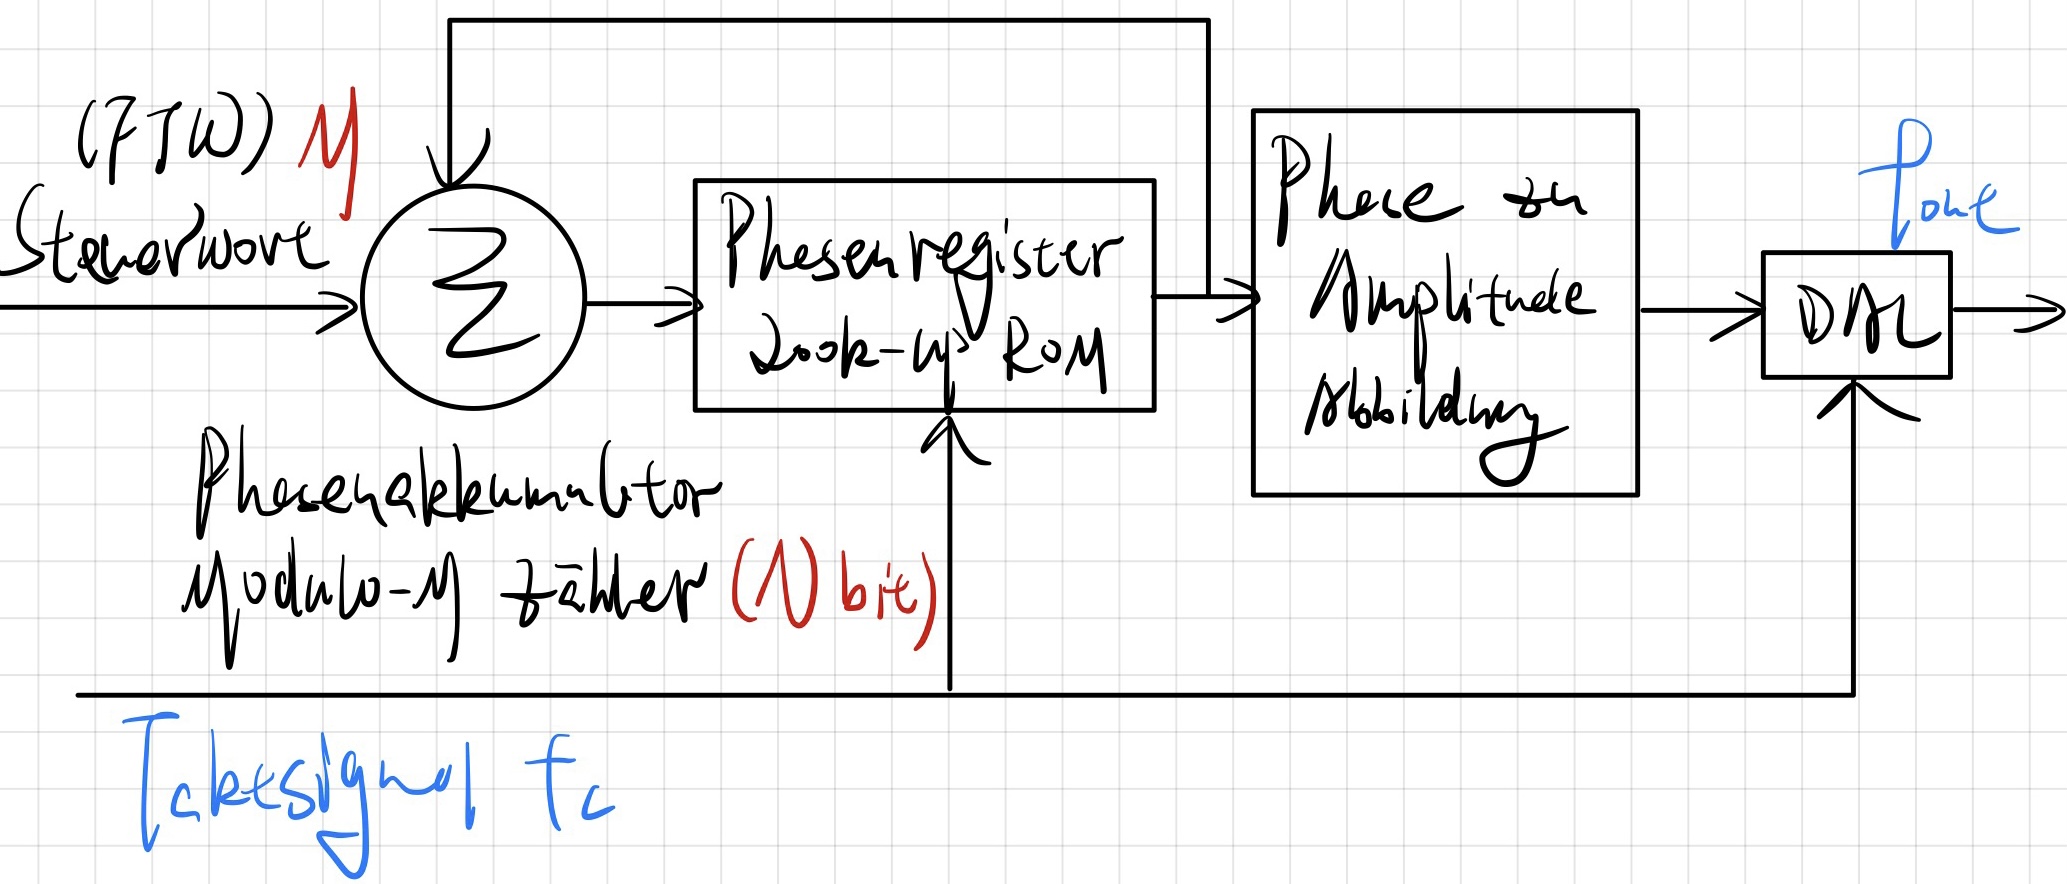 (FTW) M
Steuerwort
Σ
Phasenregister
Look-up ROM
Phase zu
Amplitude
Abbildung
fout
DAC
Phasenakkumulator
Modulo-M Zähler (N bit)
Taktsignal fc